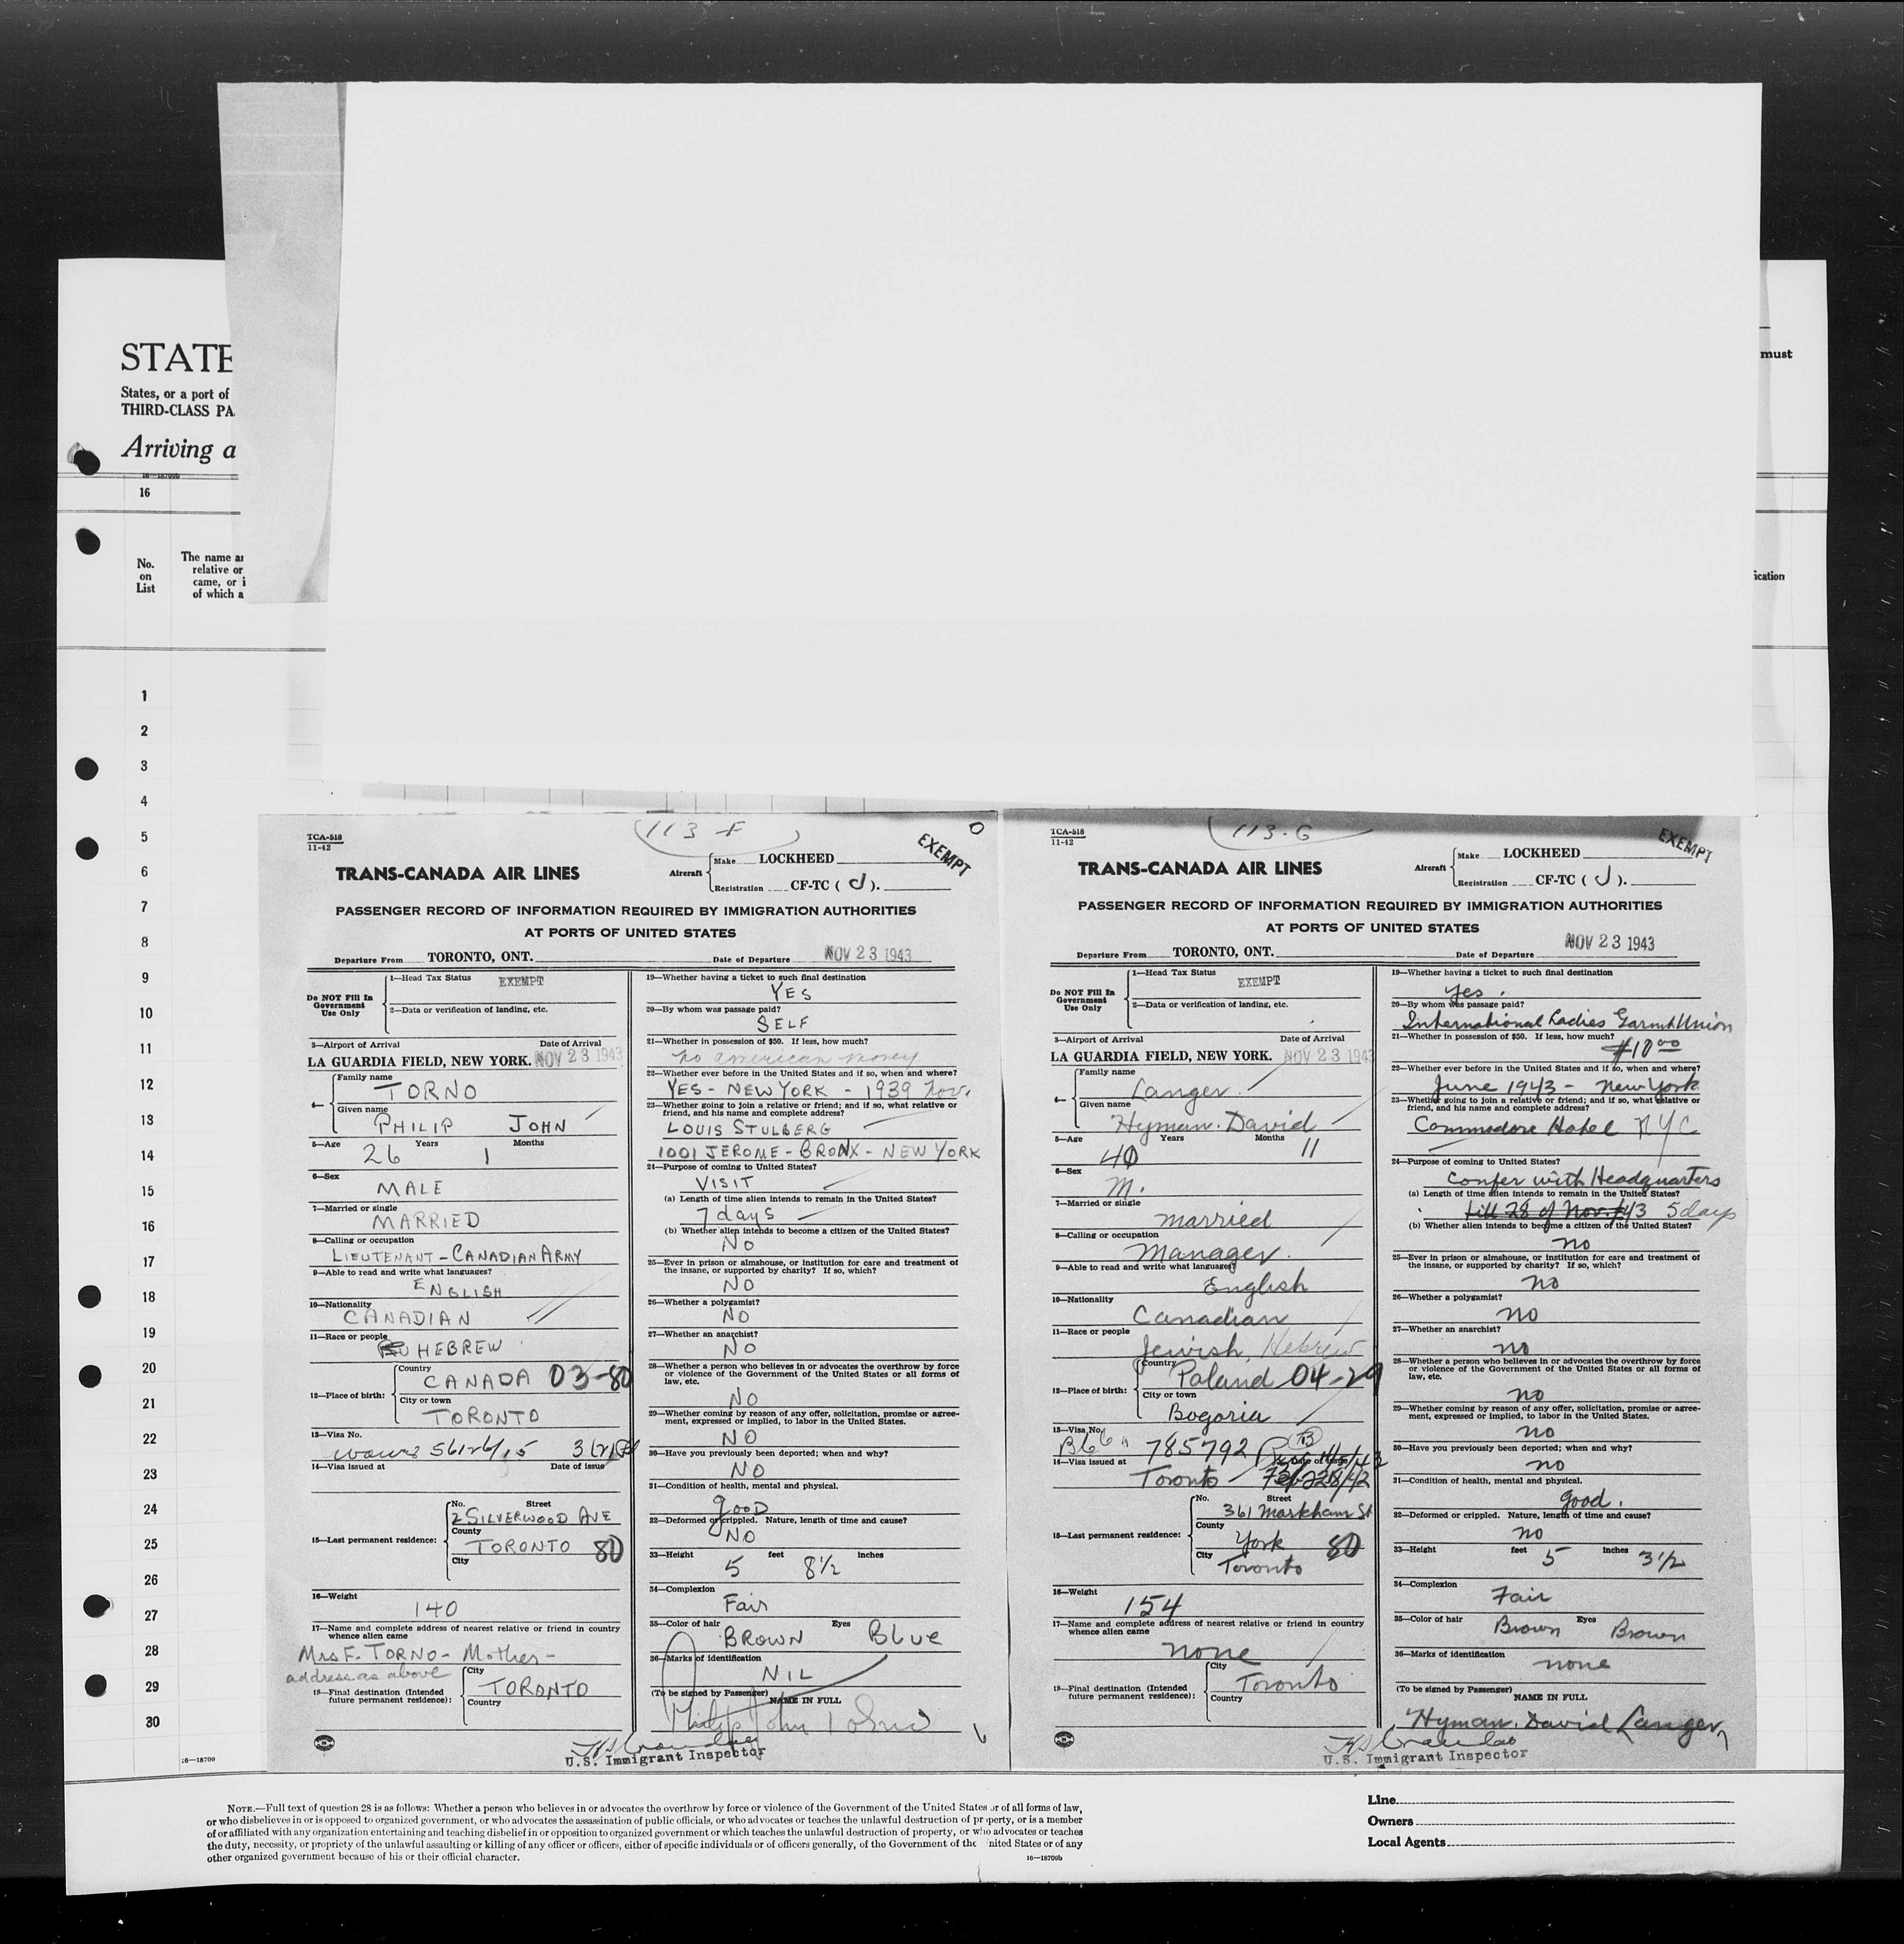 STATE
States, or a port of
THIRD-CLASS PA
Arriving a
16—18709b
16
No.
on
List
The name an
relative or
came, or i
of which a
must
ication
1
2
3
4
5
6
7
8
9
10
11
12
13
14
15
16
17
18
19
20
21
22
23
24
25
26
27
28
29
30
16—18709
113-F
TCA-518
11-42
EXEMPT
TRANS-CANADA AIR LINES
Aircraft
Make LOCKHEED
Registration CF-TC ( J ).
PASSENGER RECORD OF INFORMATION REQUIRED BY IMMIGRATION AUTHORITIES
AT PORTS OF UNITED STATES
Departure From TORONTO, ONT. Date of Departure NOV 23 1943
Do NOT Fill In
Government
Use Only
1—Head Tax Status EXEMPT
2—Data or verification of landing, etc.
3—Airport of Arrival Date of Arrival
LA GUARDIA FIELD, NEW YORK. NOV 23 1943
4—
Family name
TORNO
Given name
PHILIP JOHN
5—Age Years Months
26 1
6—Sex
MALE
7—Married or single
MARRIED
8—Calling or occupation
LIEUTENANT - CANADIAN ARMY
9—Able to read and write what languages?
ENGLISH
10—Nationality
CANADIAN
11—Race or people
HEBREW
12—Place of birth:
Country
CANADA 03-80
City or town
TORONTO
13—Visa No.
14—Visa issued at Date of issue
15—Last permanent residence:
No. Street
2 SILVERWOOD AVE
County
TORONTO 80
City
16—Weight
140
17—Name and complete address of nearest relative or friend in country
whence alien came
Mrs F. TORNO - Mother -
address as above
18—Final destination (Intended
future permanent residence):
City
TORONTO
Country
19—Whether having a ticket to such final destination
YES
20—By whom was passage paid?
SELF
21—Whether in possession of $50. If less, how much?
no american money
22—Whether ever before in the United States and if so, when and where?
YES - NEW YORK - 1939 Nov.
23—Whether going to join a relative or friend; and if so, what relative or
friend, and his name and complete address?
LOUIS STULBERG
1001 JEROME - BRONX - NEW YORK
24—Purpose of coming to United States?
VISIT
(a) Length of time alien intends to remain in the United States?
7 days
(b) Whether alien intends to become a citizen of the United States?
NO
25—Ever in prison or almshouse, or institution for care and treatment of
the insane, or supported by charity? If so, which?
NO
26—Whether a polygamist?
NO
27—Whether an anarchist?
NO
28—Whether a person who believes in or advocates the overthrow by force
or violence of the Government of the United States or all forms of
law, etc.
NO
29—Whether coming by reason of any offer, solicitation, promise or agree-
ment, expressed or implied, to labor in the United States.
NO
30—Have you previously been deported; when and why?
NO
31—Condition of health, mental and physical.
GOOD
32—Deformed or crippled. Nature, length of time and cause?
NO
33—Height feet inches
5 8½
34—Complexion
Fair
35—Color of hair Eyes
BROWN Blue
36—Marks of identification
NIL
(To be signed by Passenger)
NAME IN FULL
Philip John Torno
U.S. Immigrant Inspector
113-G
TCA-518
11-42
EXEMPT
TRANS-CANADA AIR LINES
Aircraft
Make LOCKHEED
Registration CF-TC ( J ).
PASSENGER RECORD OF INFORMATION REQUIRED BY IMMIGRATION AUTHORITIES
AT PORTS OF UNITED STATES
Departure From TORONTO, ONT. Date of Departure NOV 23 1943
Do NOT Fill In
Government
Use Only
1—Head Tax Status EXEMPT
2—Data or verification of landing, etc.
3—Airport of Arrival Date of Arrival
LA GUARDIA FIELD, NEW YORK. NOV 23 1943
4—
Family name
Langer
Given name
Hyman. David
5—Age Years Months
40 11
6—Sex
M.
7—Married or single
married
8—Calling or occupation
Manager.
9—Able to read and write what languages?
English
10—Nationality
Canadian
11—Race or people
Jewish, Hebrew
12—Place of birth:
Country
Poland 04-29
City or town
Bogoria
13—Visa No.
785792
14—Visa issued at Date of issue
Toronto
15—Last permanent residence:
No. Street
361 Markham St
County
York 80
City
Toronto
16—Weight
154
17—Name and complete address of nearest relative or friend in country
whence alien came
none
18—Final destination (Intended
future permanent residence):
City
Toronto
Country
19—Whether having a ticket to such final destination
yes.
20—By whom was passage paid?
International Ladies Garmt Union
21—Whether in possession of $50. If less, how much?
$10.00
22—Whether ever before in the United States and if so, when and where?
June 1943 - New York
23—Whether going to join a relative or friend; and if so, what relative or
friend, and his name and complete address?
Commodore Hotel NYC
24—Purpose of coming to United States?
Confer with Headquarters
(a) Length of time alien intends to remain in the United States?
till 28 of Nov. /43 5 days
(b) Whether alien intends to become a citizen of the United States?
no
25—Ever in prison or almshouse, or institution for care and treatment of
the insane, or supported by charity? If so, which?
no
26—Whether a polygamist?
no
27—Whether an anarchist?
no
28—Whether a person who believes in or advocates the overthrow by force
or violence of the Government of the United States or all forms of
law, etc.
no
29—Whether coming by reason of any offer, solicitation, promise or agree-
ment, expressed or implied, to labor in the United States.
no
30—Have you previously been deported; when and why?
no
31—Condition of health, mental and physical.
good.
32—Deformed or crippled. Nature, length of time and cause?
no
33—Height feet inches
5 3½
34—Complexion
Fair
35—Color of hair Eyes
Brown Brown
36—Marks of identification
none
(To be signed by Passenger)
NAME IN FULL
Hyman. David Langer
U.S. Immigrant Inspector
NOTE.—Full text of question 28 is as follows: Whether a person who believes in or advocates the overthrow by force or violence of the Government of the United States or of all forms of law,
or who disbelieves in or is opposed to organized government, or who advocates the assassination of public officials, or who advocates or teaches the unlawful destruction of property, or is a member
of or affiliated with any organization entertaining and teaching disbelief in or opposition to organized government or which teaches the unlawful destruction of property, or who advocates or teaches
the duty, necessity, or propriety of the unlawful assaulting or killing of any officer or officers, either of specific individuals or of officers generally, of the Government of the United States or of any
other organized government because of his or their official character.
16—18709b
Line
Owners
Local Agents